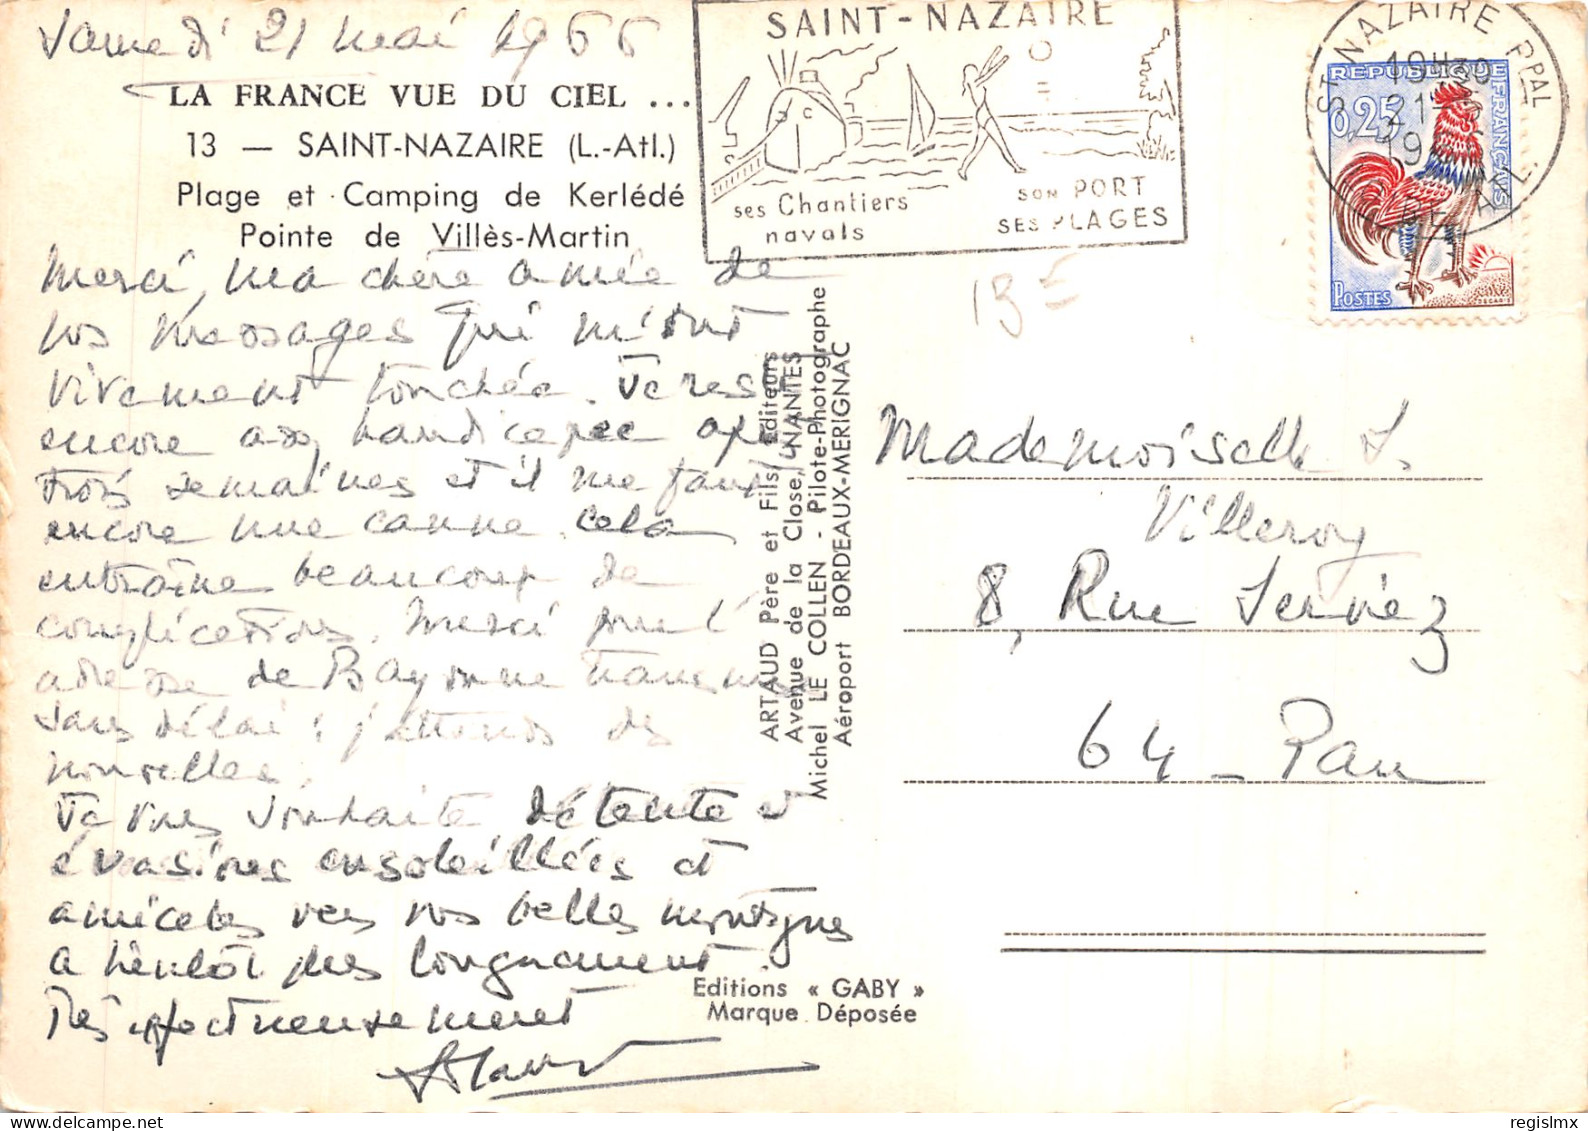 Samedi 21 mai 1966
LA FRANCE VUE DU CIEL ...
13 — SAINT-NAZAIRE (L.-Atl.)
Plage et Camping de Kerlédé
Pointe de Villès-Martin
Merci, ma chère amie de
vos messages qui m'ont
vivement touchée. Je res
encore assez handicapée après
trois semaines et il me faut
encore une canne. cela
entraîne beaucoup de
complications. Merci pour l'
adresse de Bayonne transmise
sans délai : j'attends des
nouvelles.
Je vous souhaite détente et
évasions ensoleillées et
amicales vers vos belles montagnes
à bientôt plus longuement
Très affectueusement
SAINT-NAZAIRE
ses Chantiers
navals
son PORT
SES PLAGES
ST NAZAIRE PPAL
19H30
21
19
REPUBLIQUE FRANÇAISE
0,25
POSTES
DECARIS
13 €
ARTAUD Père et Fils, Editeurs
Avenue de la Close, NANTES
Michel LE COLLEN - Pilote-Photographe
Aéroport BORDEAUX-MERIGNAC
Mademoiselle S.
Villeroy
8, Rue Serviez
64 - Pau
Editions « GABY »
Marque Déposée
regislmx